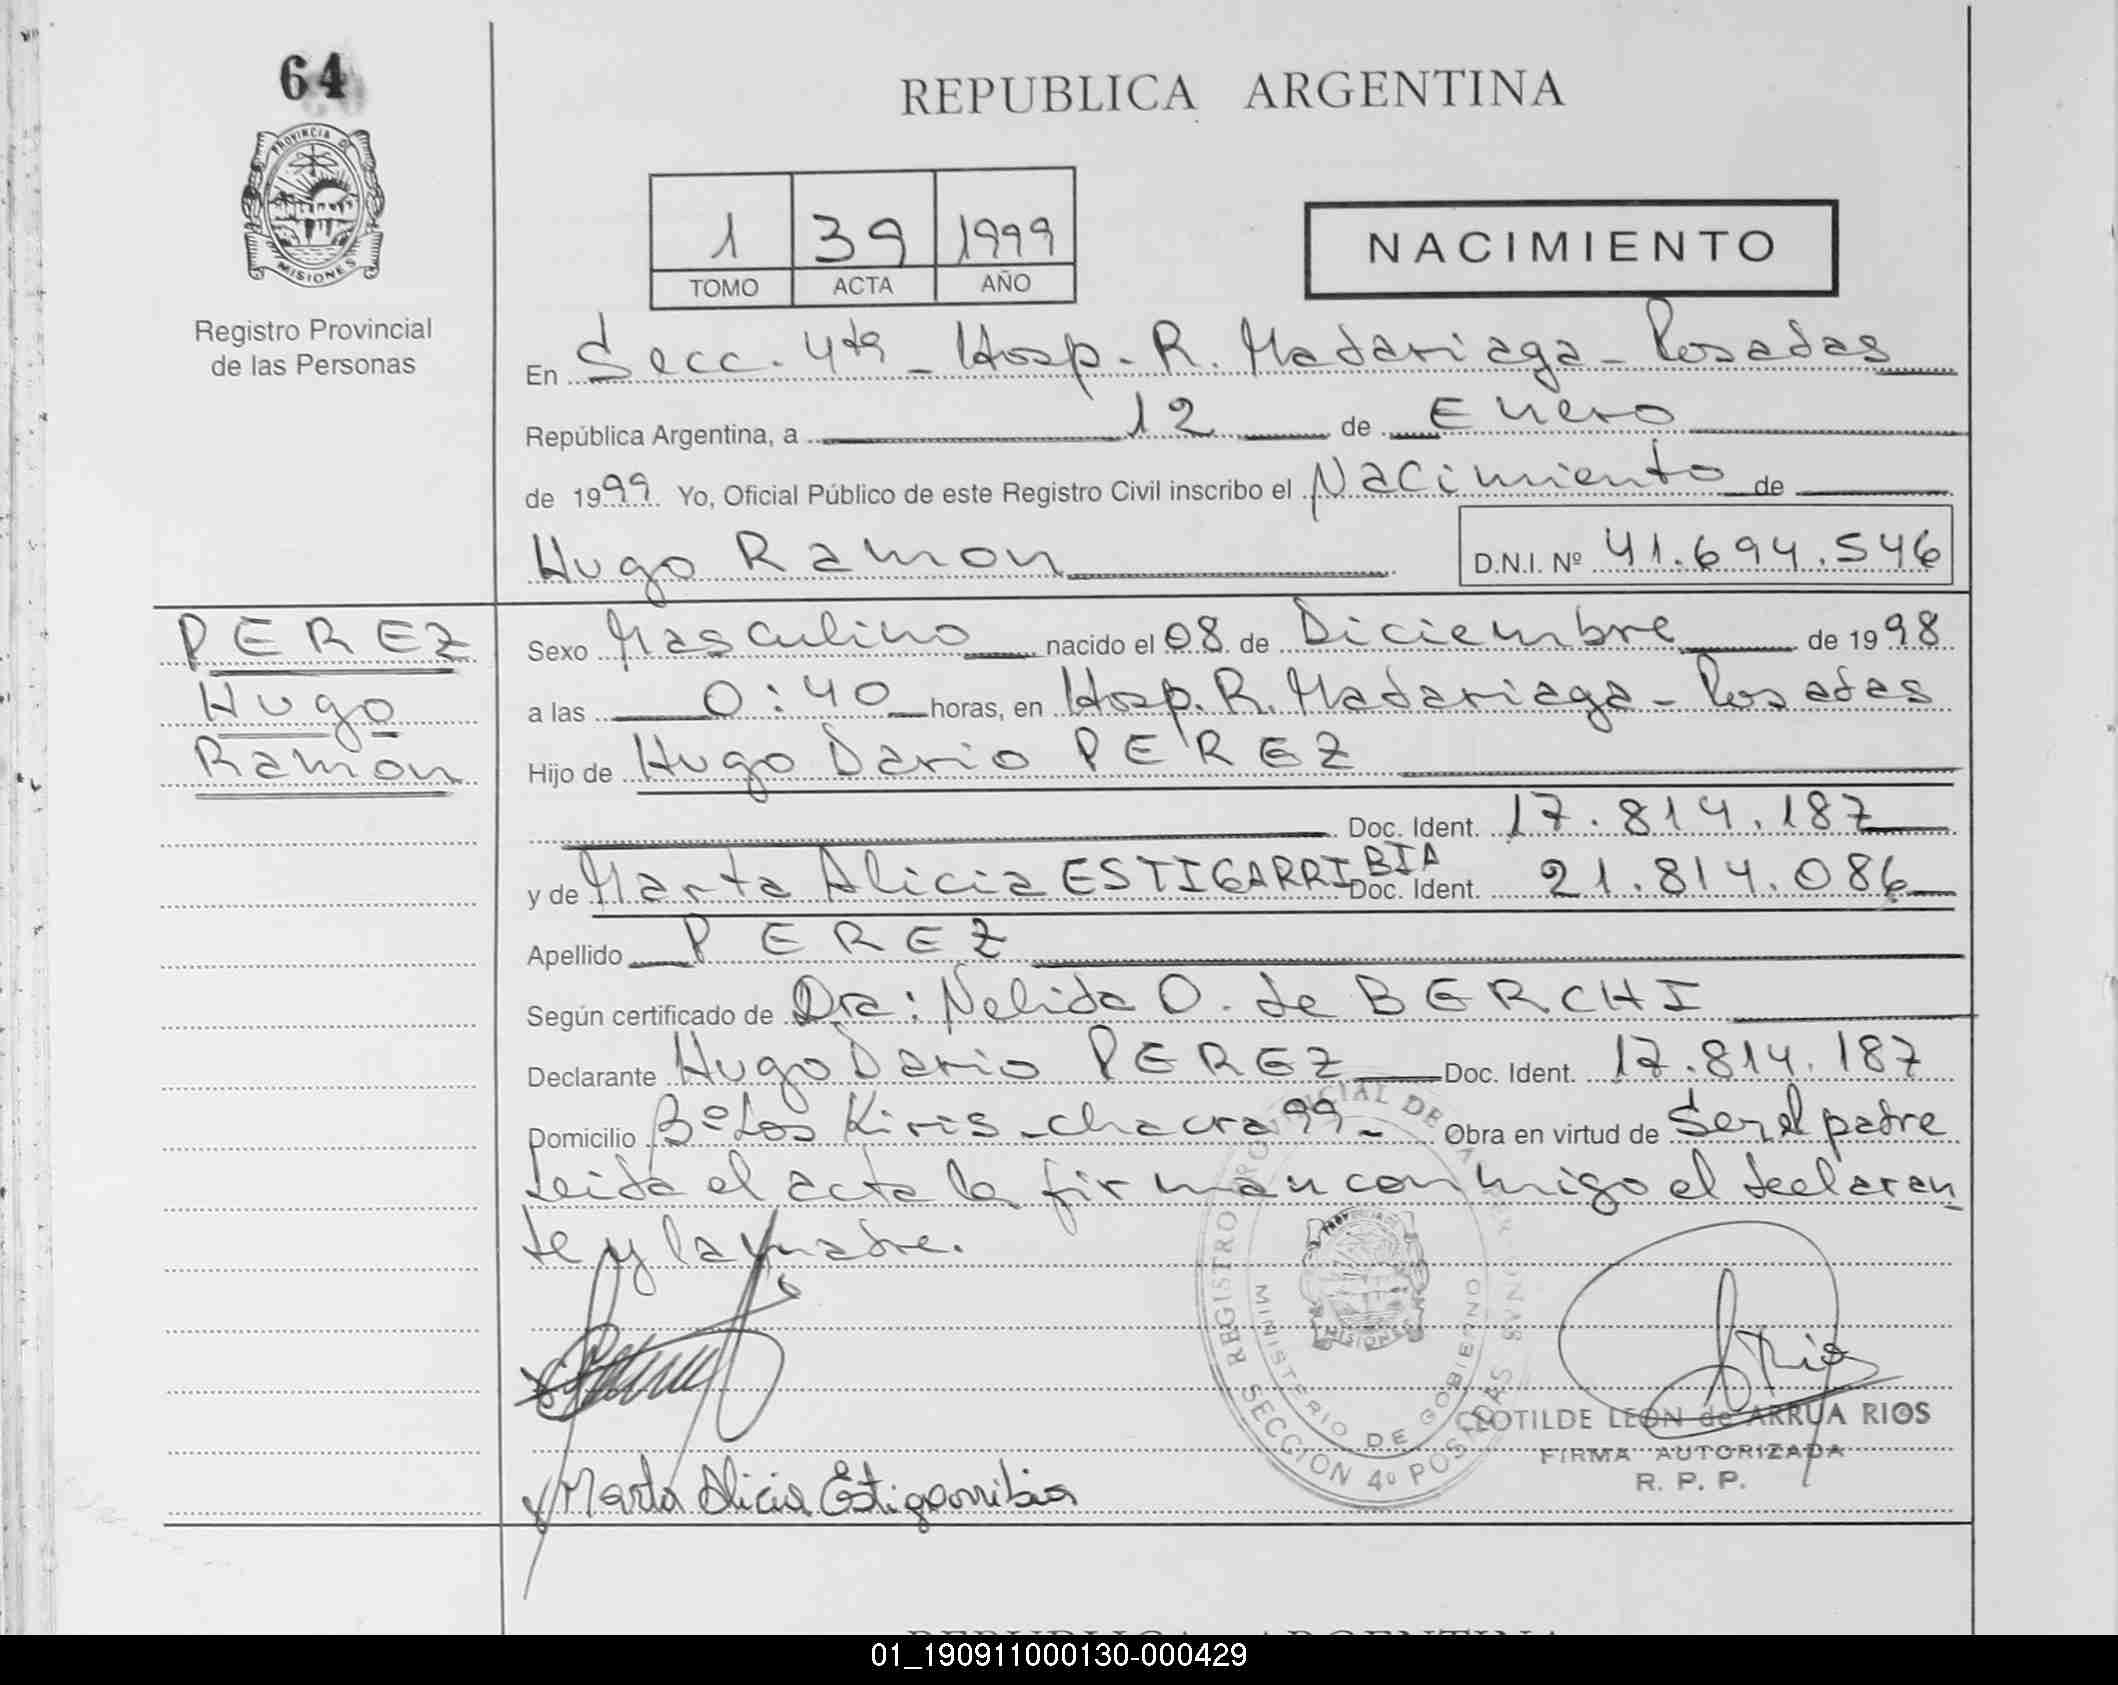 64
PROVINCIA DE
MISIONES
Registro Provincial
de las Personas
REPUBLICA ARGENTINA
1 39 1999
TOMO ACTA AÑO
NACIMIENTO
En Secc. 4ta - Hosp. R. Madariaga - Posadas
República Argentina, a 12 de Enero
de 1999 Yo, Oficial Público de este Registro Civil inscribo el Nacimiento de
Hugo Ramon
D.N.I. Nº 41.694.546
PEREZ
Hugo
Ramon
Sexo Masculino nacido el 08 de Diciembre de 1998
a las 0:40 horas, en Hosp. R. Madariaga - Posadas
Hijo de Hugo Dario PEREZ
Doc. Ident. 17.814.187
y de Marta Alicia ESTIGARRIBIA Doc. Ident. 21.814.086
Apellido PEREZ
Según certificado de Dra: Nelida O. de BERCHI
Declarante Hugo Dario PEREZ Doc. Ident. 17.814.187
Domicilio Bº Los Kiris - chacra 99 - Obra en virtud de Ser el padre
Leida el acta la firman conmigo el declaran
te y la madre.
MINISTERIO DE GOBIERNO
SECCION 4º POSADAS
MISIONES
Rios
CLOTILDE LEON de ARRUA RIOS
FIRMA AUTORIZADA
R. P. P.
Marta Alicia Estigarribia
REPUBLICA ARGENTINA
01_190911000130-000429